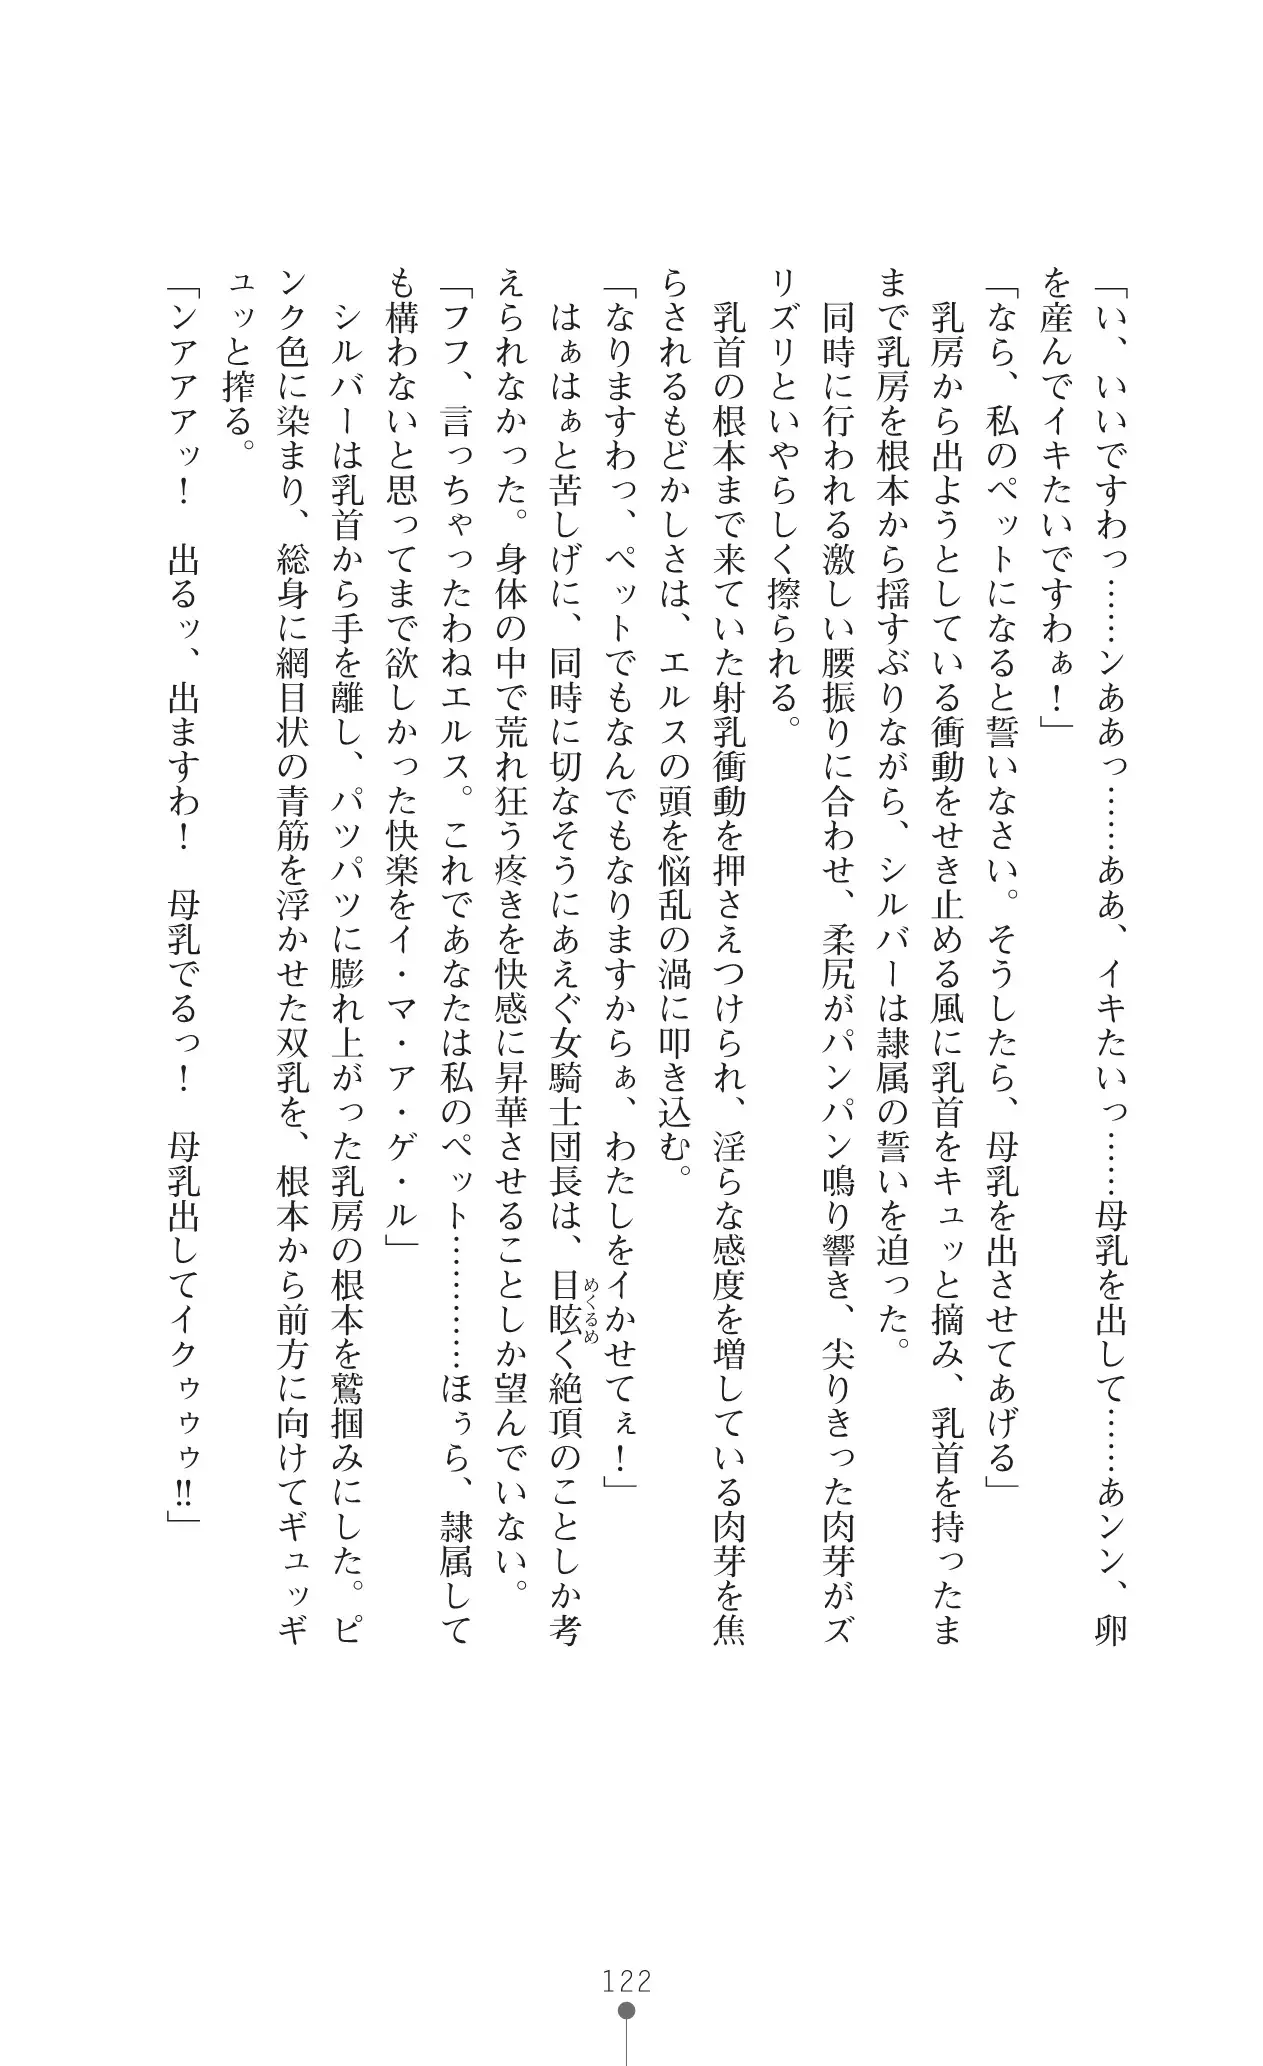 「い、いいですわっ……ンああっ……ああ、イキたいっ……母乳を出して……あンン、卵
を産んでイキたいですわぁ！」
「なら、私のペットになると誓いなさい。そうしたら、母乳を出させてあげる」
　乳房から出ようとしている衝動をせき止める風に乳首をキュッと摘み、乳首を持ったま
まで乳房を根本から揺すぶりながら、シルバーは隷属の誓いを迫った。
　同時に行われる激しい腰振りに合わせ、柔尻がパンパン鳴り響き、尖りきった肉芽がズ
リズリといやらしく擦られる。
　乳首の根本まで来ていた射乳衝動を押さえつけられ、淫らな感度を増している肉芽を焦
らされるもどかしさは、エルスの頭を悩乱の渦に叩き込む。
「なりますわっ、ペットでもなんでもなりますからぁ、わたしをイかせてぇ！」
　はぁはぁと苦しげに、同時に切なそうにあえぐ女騎士団長は、目眩く絶頂のことしか考
めくるめ
えられなかった。身体の中で荒れ狂う疼きを快感に昇華させることしか望んでいない。
「フフ、言っちゃったわねエルス。これであなたは私のペット…………ほぅら、隷属して
も構わないと思ってまで欲しかった快楽をイ・マ・ア・ゲ・ル」
　シルバーは乳首から手を離し、パツパツに膨れ上がった乳房の根本を鷲掴みにした。ピ
ンク色に染まり、総身に網目状の青筋を浮かせた双乳を、根本から前方に向けてギュッギ
ュッと搾る。
「ンアアアッ！　出るッ、出ますわ！　母乳でるっ！　母乳出してイクゥゥゥ!!」
122